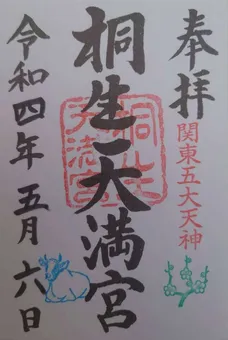 奉拝
関東五大天神
桐生天満宮
桐生
天満宮
令和四年五月六日